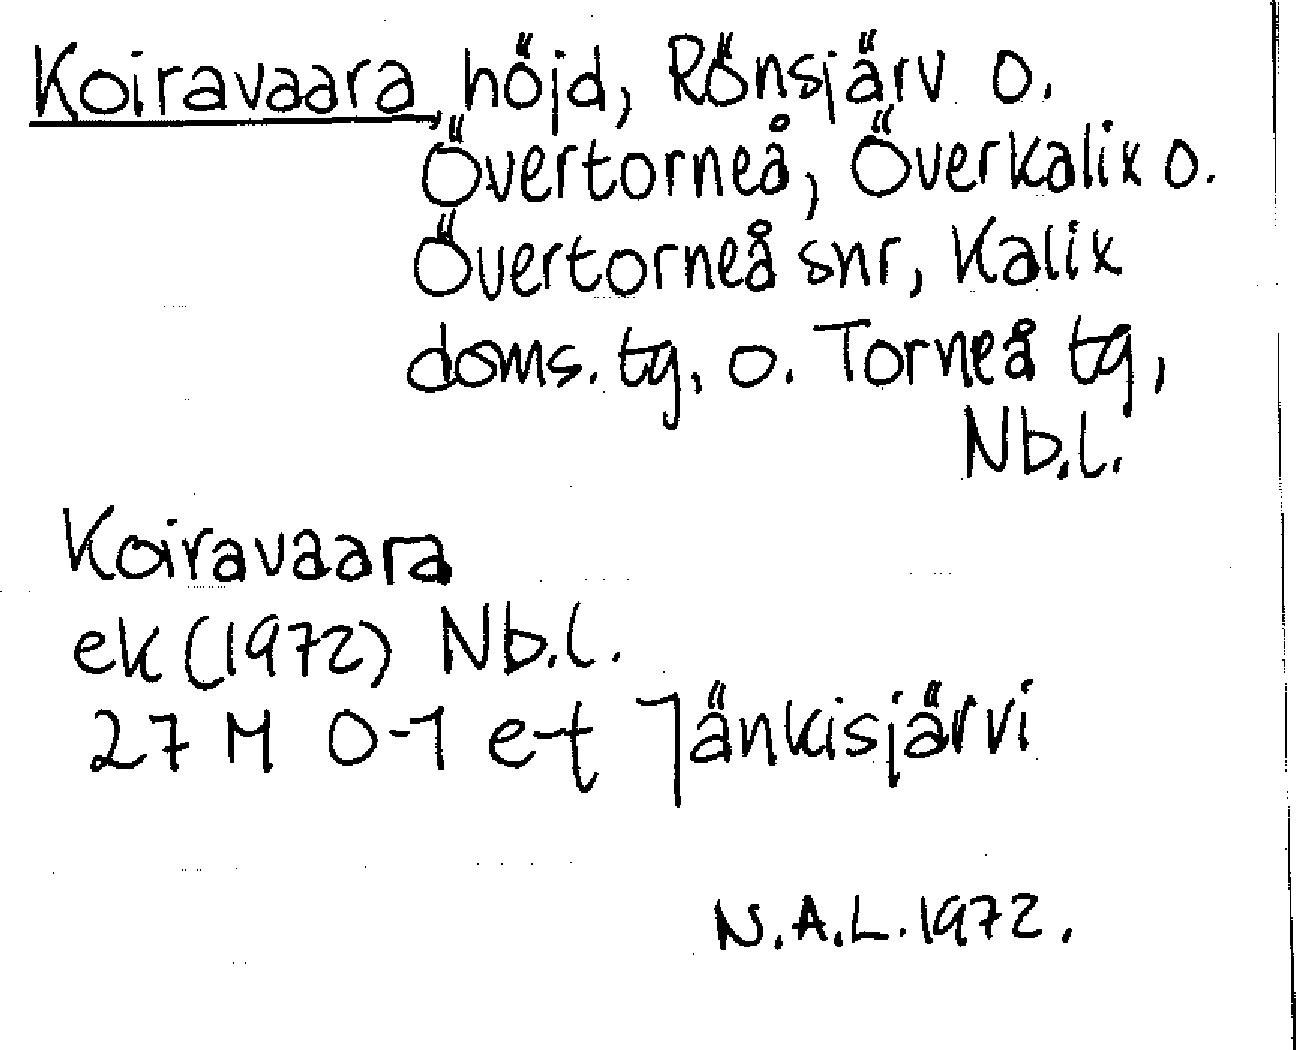 Koiravaara, höjd, Rönsjärv o.
Övertorneå, Överkalix o.
Övertorneå snr, Kalix
doms. tg. o. Torneå tg,
Nb.l.
Koiravaara
ek (1972) Nb.l.
27 M 0-1 e-f Jänkisjärvi
N.A.L. 1972.